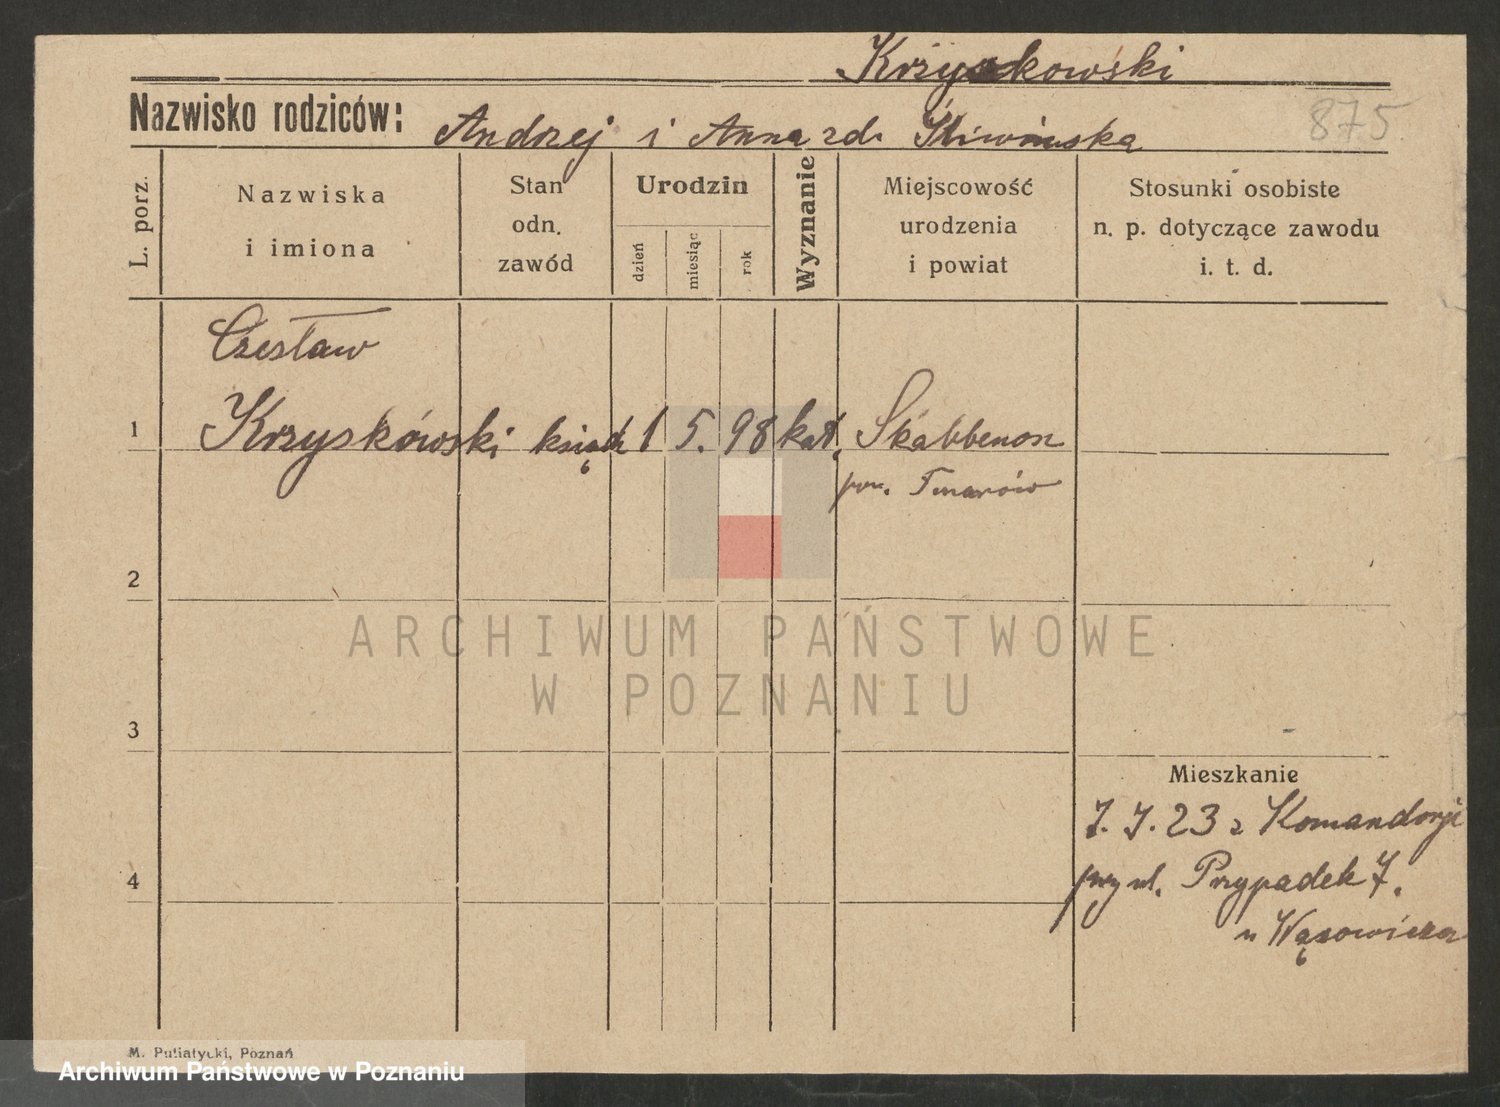 Krzyskowski
Nazwisko rodziców:
Andrzej i Anna zd. Śliwińska
875
L. porz.
Nazwiska
i imiona
Stan
odn.
zawód
Urodzin
dzień
miesiąc
rok
Wyznanie
Miejscowość
urodzenia
i powiat
Stosunki osobiste
n. p. dotyczące zawodu
i. t. d.
Czesław
1 Krzyskówski ksiądz 1 5. 98 kat.
pow.
2
ARCHIWUM PAŃSTWOWE
W POZNANIU
3
Mieszkanie
23 z Komandorji
4
przy ul. Przypadek 7.
u Wąsowicza
M. Putiatycki, Poznań
Archiwum Państwowe w Poznaniu